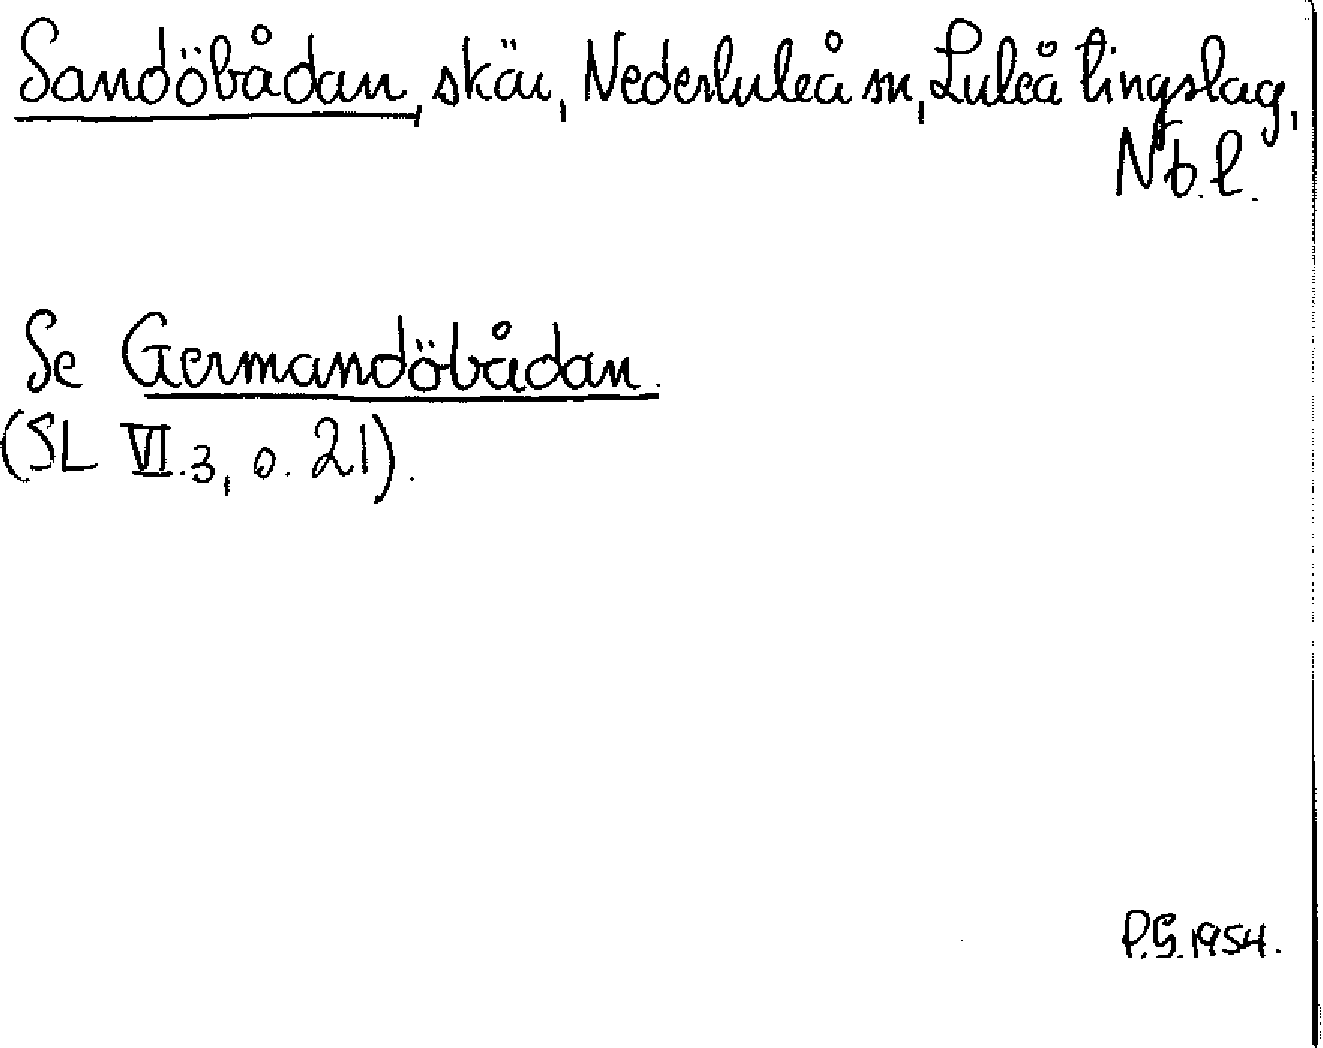 Sandöbådan, skär, Nederluleå sn, Luleå tingslag,
Nb.l.
Se Germandöbådan.
(SL VI.3, o. 21).
P.G. 1954.